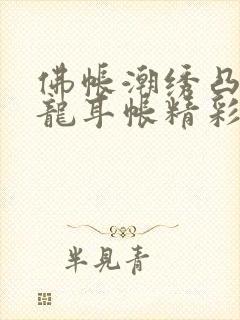 佛帳潮绣凸
龍耳帐精彩
半見青